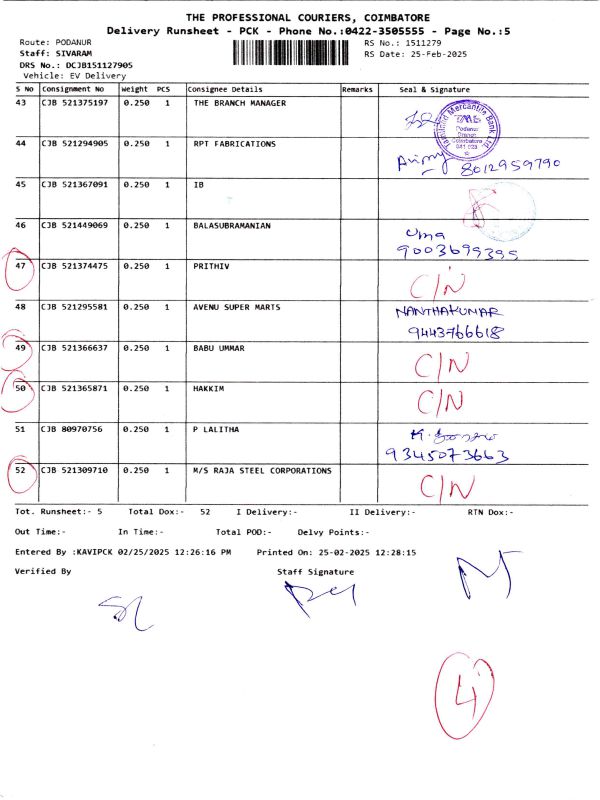 THE PROFESSIONAL COURIERS, COIMBATORE
Delivery Runsheet - PCK - Phone No.:0422-3505555 - Page No.:5
Route: PODANUR RS No.: 1511279
Staff: SIVARAM RS Date: 25-Feb-2025
DRS No.: DCJB151127905
Vehicle: EV Delivery
S No Consignment No Weight PCS Consignee Details Remarks Seal & Signature
43 CJB 521375197 0.250 1 THE BRANCH MANAGER
Tamilnad Mercantile Bank Ltd
TMB
Podanur
Branch
Coimbatore
641 023
44 CJB 521294905 0.250 1 RPT FABRICATIONS
8012959790
45 CJB 521367091 0.250 1 IB
46 CJB 521449069 0.250 1 BALASUBRAMANIAN
Uma
9003699395
47 CJB 521374475 0.250 1 PRITHIV C/N
48 CJB 521295581 0.250 1 AVENU SUPER MARTS NANTHAKUMAR
9443766618
49 CJB 521366637 0.250 1 BABU UMMAR C/N
50 CJB 521365871 0.250 1 HAKKIM C/N
51 CJB 80970756 0.250 1 P LALITHA
9345073663
52 CJB 521309710 0.250 1 M/S RAJA STEEL CORPORATIONS C/N
Tot. Runsheet:- 5 Total Dox:- 52 I Delivery:- II Delivery:- RTN Dox:-
Out Time:- In Time:- Total POD:- Delvy Points:-
Entered By :KAVIPCK 02/25/2025 12:26:16 PM Printed On: 25-02-2025 12:28:15
Verified By Staff Signature
4